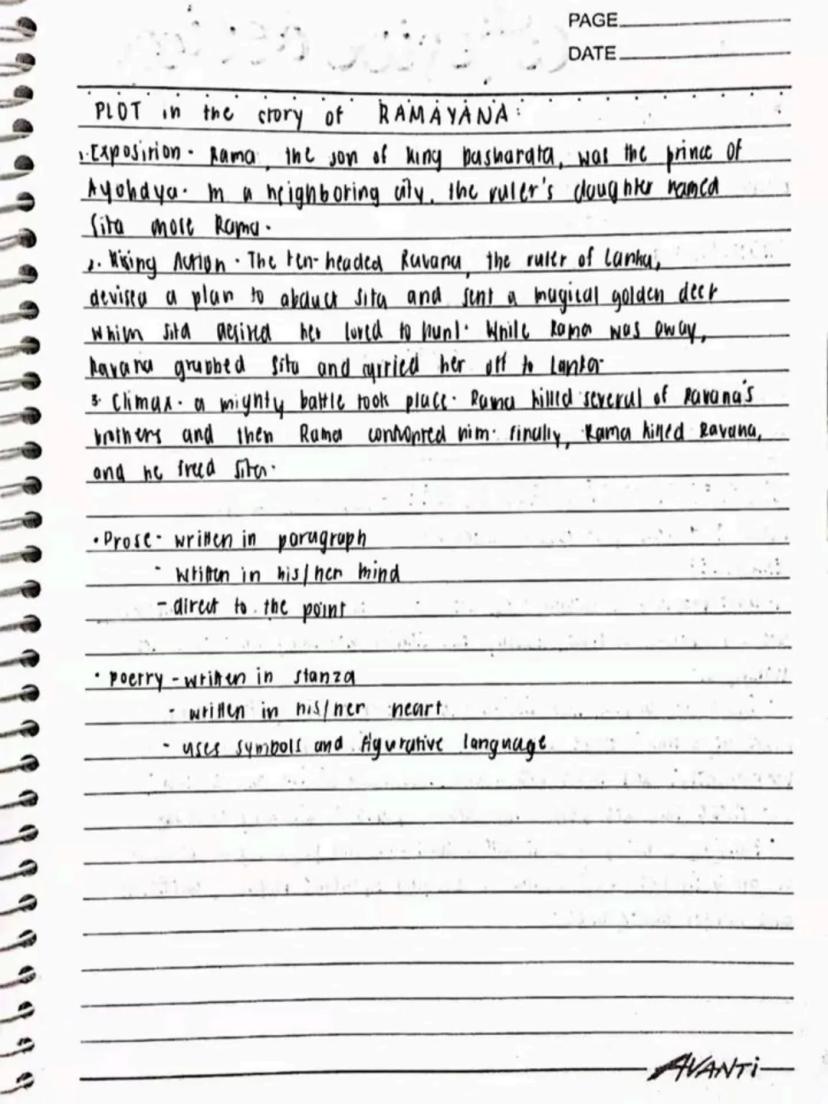 PAGE
DATE
PLOT in the story of RAMAYANA:
1. Exposition - Rama, the son of King Dasharata, was the prince of
Ayohdya. In a neighboring city, the ruler's daughter named
Sita Rama.
2. Rising Action - The ten-headed Ravana, the ruler of Lanka,
devised a plan to abduct Sita and sent a magical golden deer
Sita desired her to hunt. While Rama was away,
Ravana grabbed Sita and carried her off to Lanka.
3. Climax - a mighty battle took place. Rama killed several of Ravana's
brothers and then Rama him. finally, Rama killed Ravana,
and he freed Sita.
• Prose - written in paragraph
- written in his/her mind
- direct to the point
• poetry - written in stanza
- written in his/her heart
- uses symbols and figurative language
AVANTi